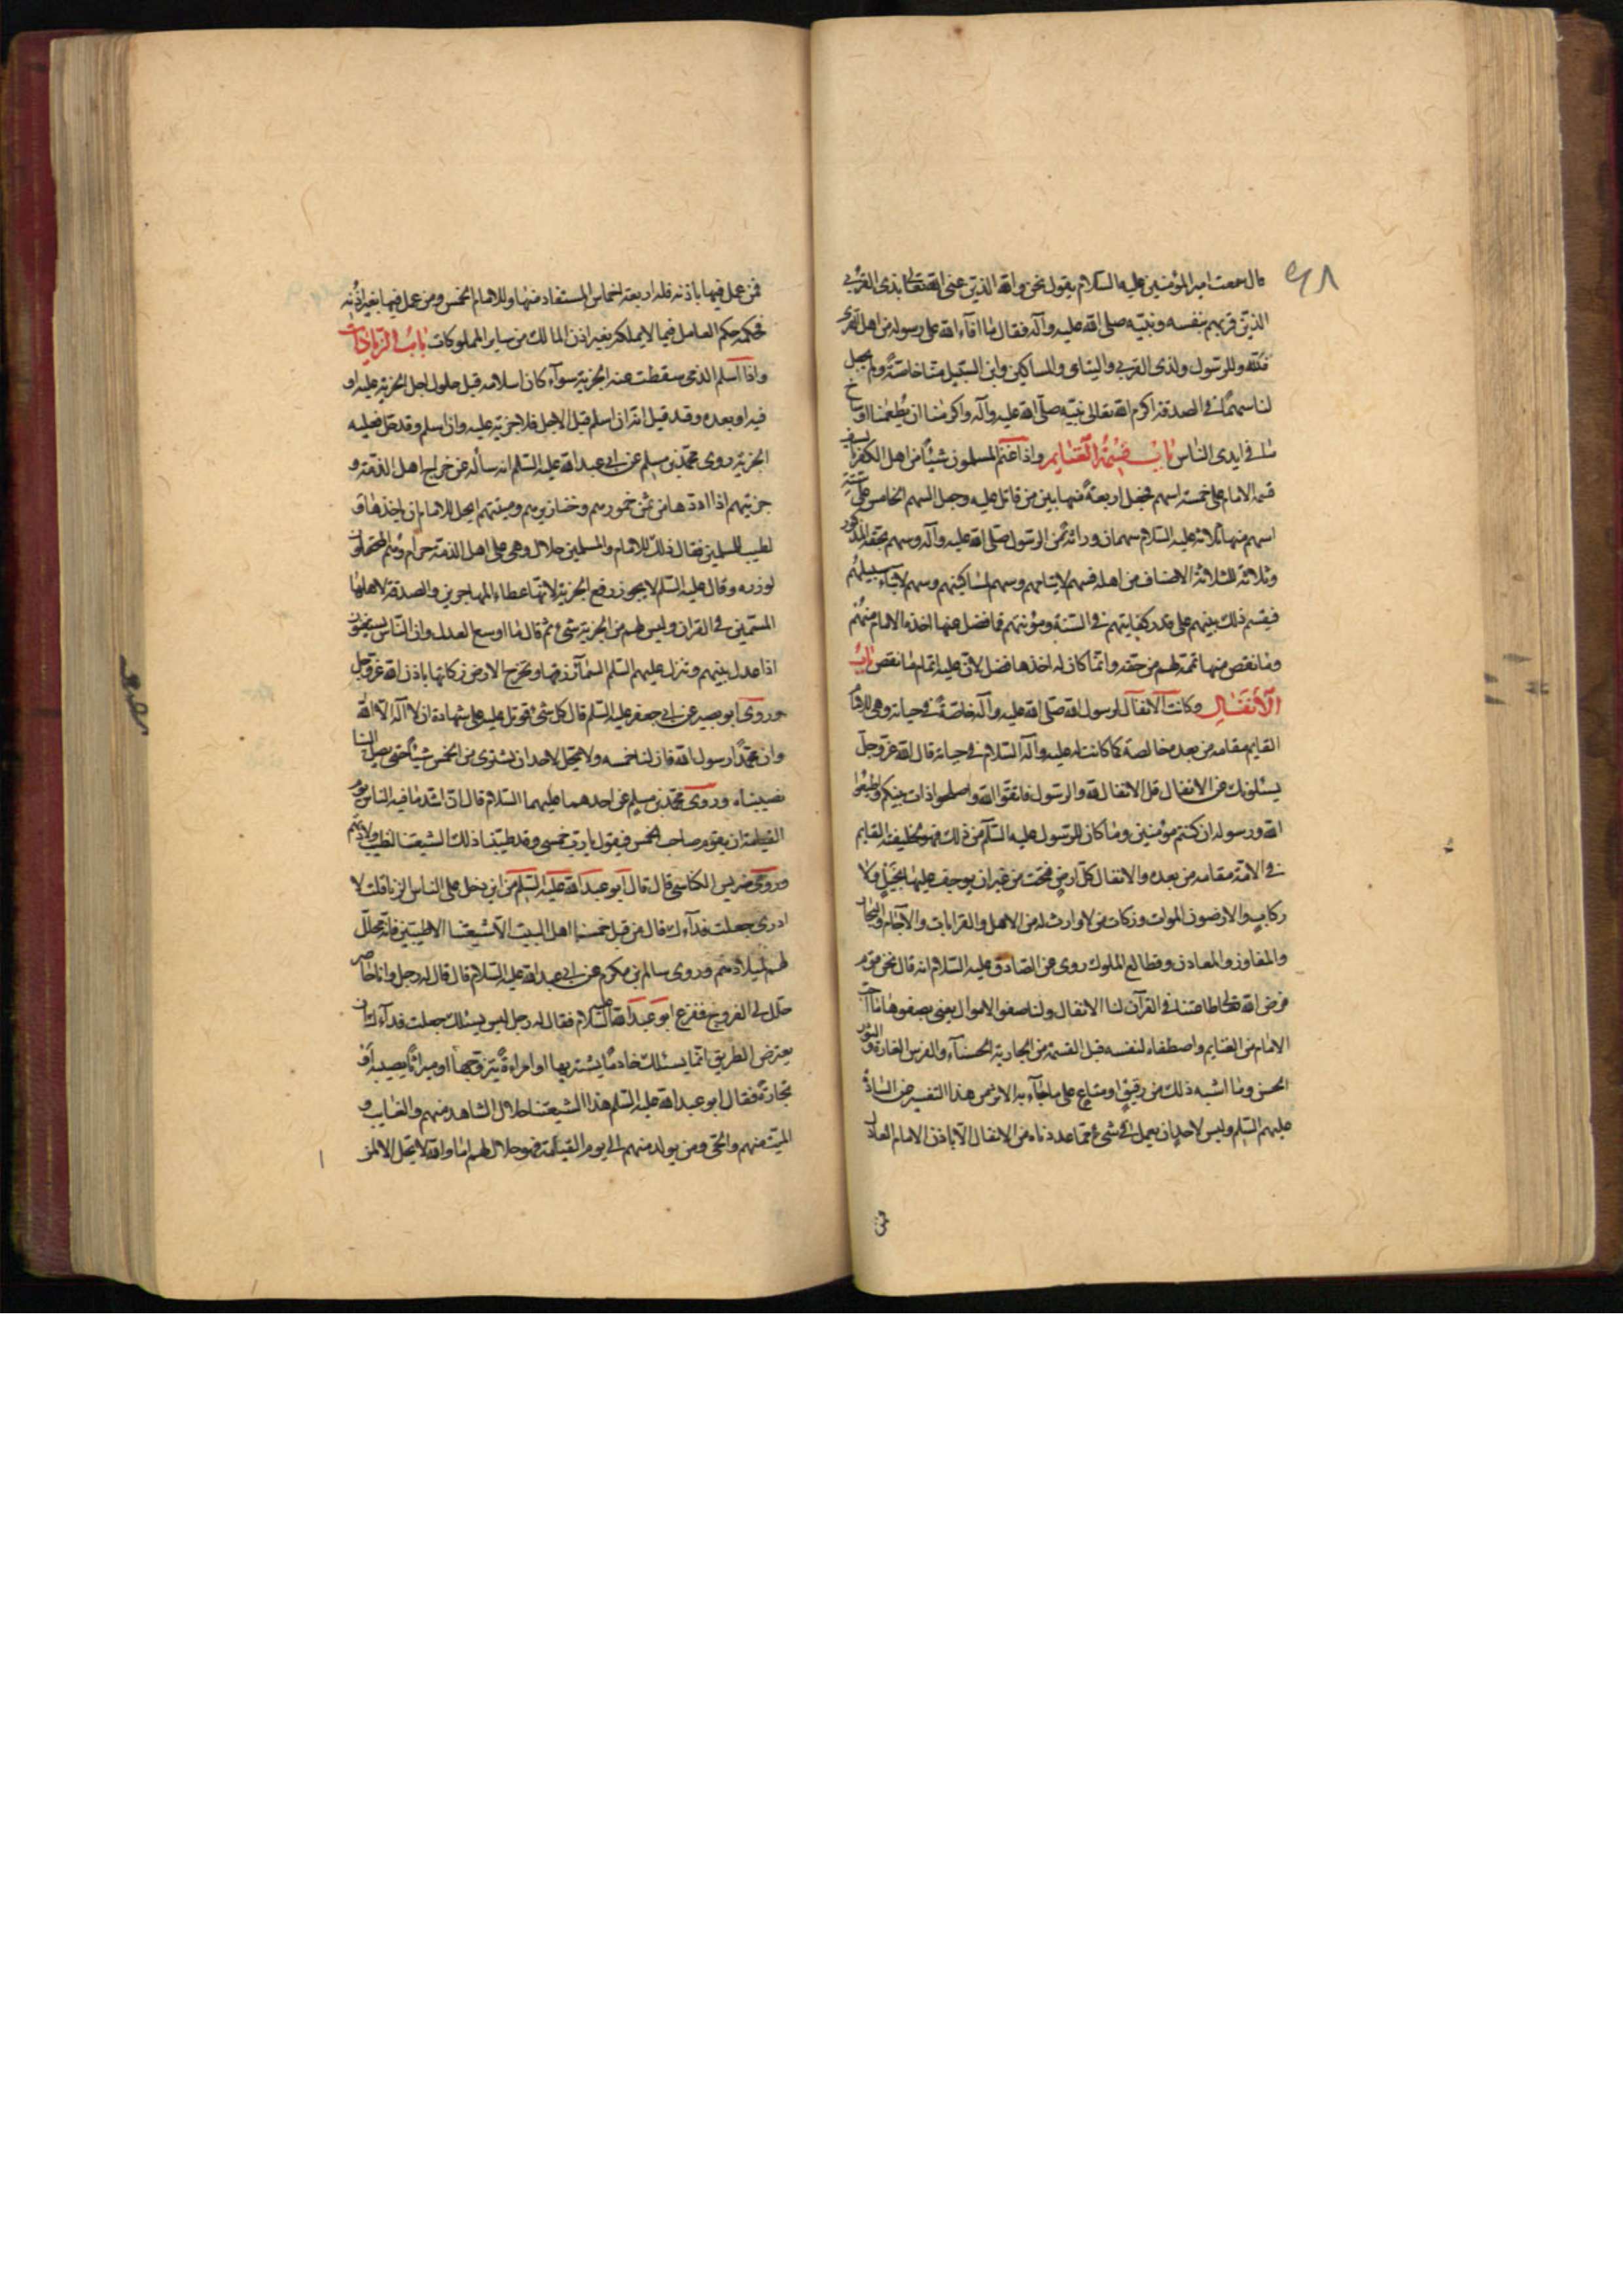 قال سمعت امير المؤمنين عليه السلام يقول نحن والله الذين عنى الله تعالى بذى القربى
الذين قرنهم بنفسه ونبيّه صلى الله عليه وآله فقال ما افاء الله على رسوله من اهل القرى
فلله وللرسول ولذى القربى واليتامى والمساكين وابن السبيل منا خاصّة ولم يجعل
لنا سهمًا فى الصدقة اكرم الله تعالى نبيّه صلّى الله عليه وآله واكرمنا ان يطعمنا اوساخ
ما فى ايدى الناس باب قسمة الغنايم واذا غنم المسلمون شيئًا من اهل الكفر بالسيف
قسمه الامام على خمسة اسهم فجعل اربعةً منها بين من قاتل عليه وجعل السهم الخامس على ستّة
اسهم منها ثلاثة عليه السلام سهمان وراثة من الرسول صلى الله عليه وآله وسهم بحقه المذكور
وثلاثة للثلاثة الاصناف من اهله فسهم لايتامهم وسهم لمساكينهم وسهم لابناء سبيلهم
فيقسم ذلك بينهم على قدر كفايتهم فى السنة ومؤنتهم فما فضل عنها اخذه الامام منهم
وما نقص منها تممه لهم من حقه وانما كان له اخذها فضل لان عليه اتمام ما نقص باب
الأنفال وكانت الانفال لرسول الله صلّى الله عليه وآله خاصّةً فى حياته وهى للامام
القايم مقامه من بعده خالصة كما كانت له عليه وآله السلام فى حياته قال الله عزّ وجلّ
يسئلونك عن الانفال قل الانفال لله والرسول فاتقوا الله واصلحوا ذات بينكم واطيعوا
الله ورسوله ان كنتم مؤمنين وما كان للرسول عليه السلم من ذلك فهو لخليفته القايم
فى الامّة مقامه من بعده والانفال كلّ ارض فتحت من غير ان يوجف عليها بخيل ولا
ركاب والارضون الموات وتركات من لا وارث له من الاهل والقرابات والآجام والبحار
والمفاوز والمعادن وقطايع الملوك روى عن الصادق عليه السلام انه قال نحن قوم
فرض الله تعالى طاعتنا فى القرآن لنا الانفال ولنا صفو الاموال يعنى بصفوها ما احب
الامام من الغنايم واصطفاه لنفسه قبل القسمة من الجارية الحسناء والفرس الفاره والثوب
الحسن وما اشبه ذلك من رقيق او متاع على ما جاء به الاثر من هذا التفسير عن السادة
عليهم السّلم وليس لاحد ان يعمل فى شىء مما عددناه من الانفال الّا باذن الامام العادل
فمن
فمن عمل فيها باذنه فله اربعة اخماس المستفاد منها وللامام الخمس ومن عمل فيها بغير اذنه
فحكمه حكم العامل فيما لا يملكه بغير اذن المالك من ساير المملوكات باب الزيادات
واذا اسلم الذمى سقطت عنه الجزية سوآء كان اسلامه قبل حلول اجل الجزية عليه او
فيه او بعده وقد قيل انه ان اسلم قبل الاجل فلا جزية عليه وان اسلم وقد حل فعليه
الجزية روى محمّد بن مسلم عن ابى عبد الله عليه السلم انه سأله عن خراج اهل الذمّة و
جزيتهم اذا ادوها من ثمن خمورهم وخنازيرهم وميتتهم ايحل للامام ان ياخذها و
تطيب للمسلمين فقال ذلك للامام والمسلمين حلال وهى على اهل الذمة حرام وهم المحتملون
لوزره وقال عليه السلم لا يجوز رفع الجزية لانها عطاء المهاجرين والصدقة لاهلها
المسمين فى القران وليس لهم من الجزية شىء ثم قال ما اوسع العدل وان الناس يستغنون
اذا عدل بينهم وتنزل عليهم السلم السمآء رزقها وتخرج الارض زكاتها باذن الله عزّ وجل
وروى ابو بصير عن ابى جعفر عليه السلم قال كل شىء قوتل عليه على شهادة ان لا اله الا الله
وان محمّدًا رسول الله فان لنا خمسه ولا يحل لاحد ان يشترى من الخمس شيئًا حتى يصل الينا
نصيبنا وروى محمّد بن مسلم عن احدهما عليهما السلام قال ان اشد ما فيه الناس يوم
القيامة ان يقوم صاحب الخمس فيقول يا رب خمسى وقد طيّبنا ذلك لشيعتنا لتطيب ولادتهم
وروى ضريس الكناسى قال قال ابو عبد الله عليه السلم من اين دخل على الناس الزنا قلت لا
ادرى جعلت فدآءك قال من قبل خمسنا اهل البيت الّا شيعتنا الاطيبين فانه محلّل
لهم لميلادهم وروى سالم بن مكرم عن ابى عبد الله عليه السلام قال قال له رجل وانا حاضر
حلّل لى الفروج ففزع ابو عبد الله عليه السلام فقال له رجل ليس يسئلك جعلت فدآءك ان
يعترض الطريق انما يسئلك خادمًا يشتريها او امراةً يتزوجها او ميراثًا يصيبه او
تجارةً فقال ابو عبد الله عليه السلم هذا لشيعتنا حلال الشاهد منهم والغايب و
الميت منهم والحى ومن يولد منهم الى يوم القيمة فهو حلال لهم اما والله لا يحل الا لمن